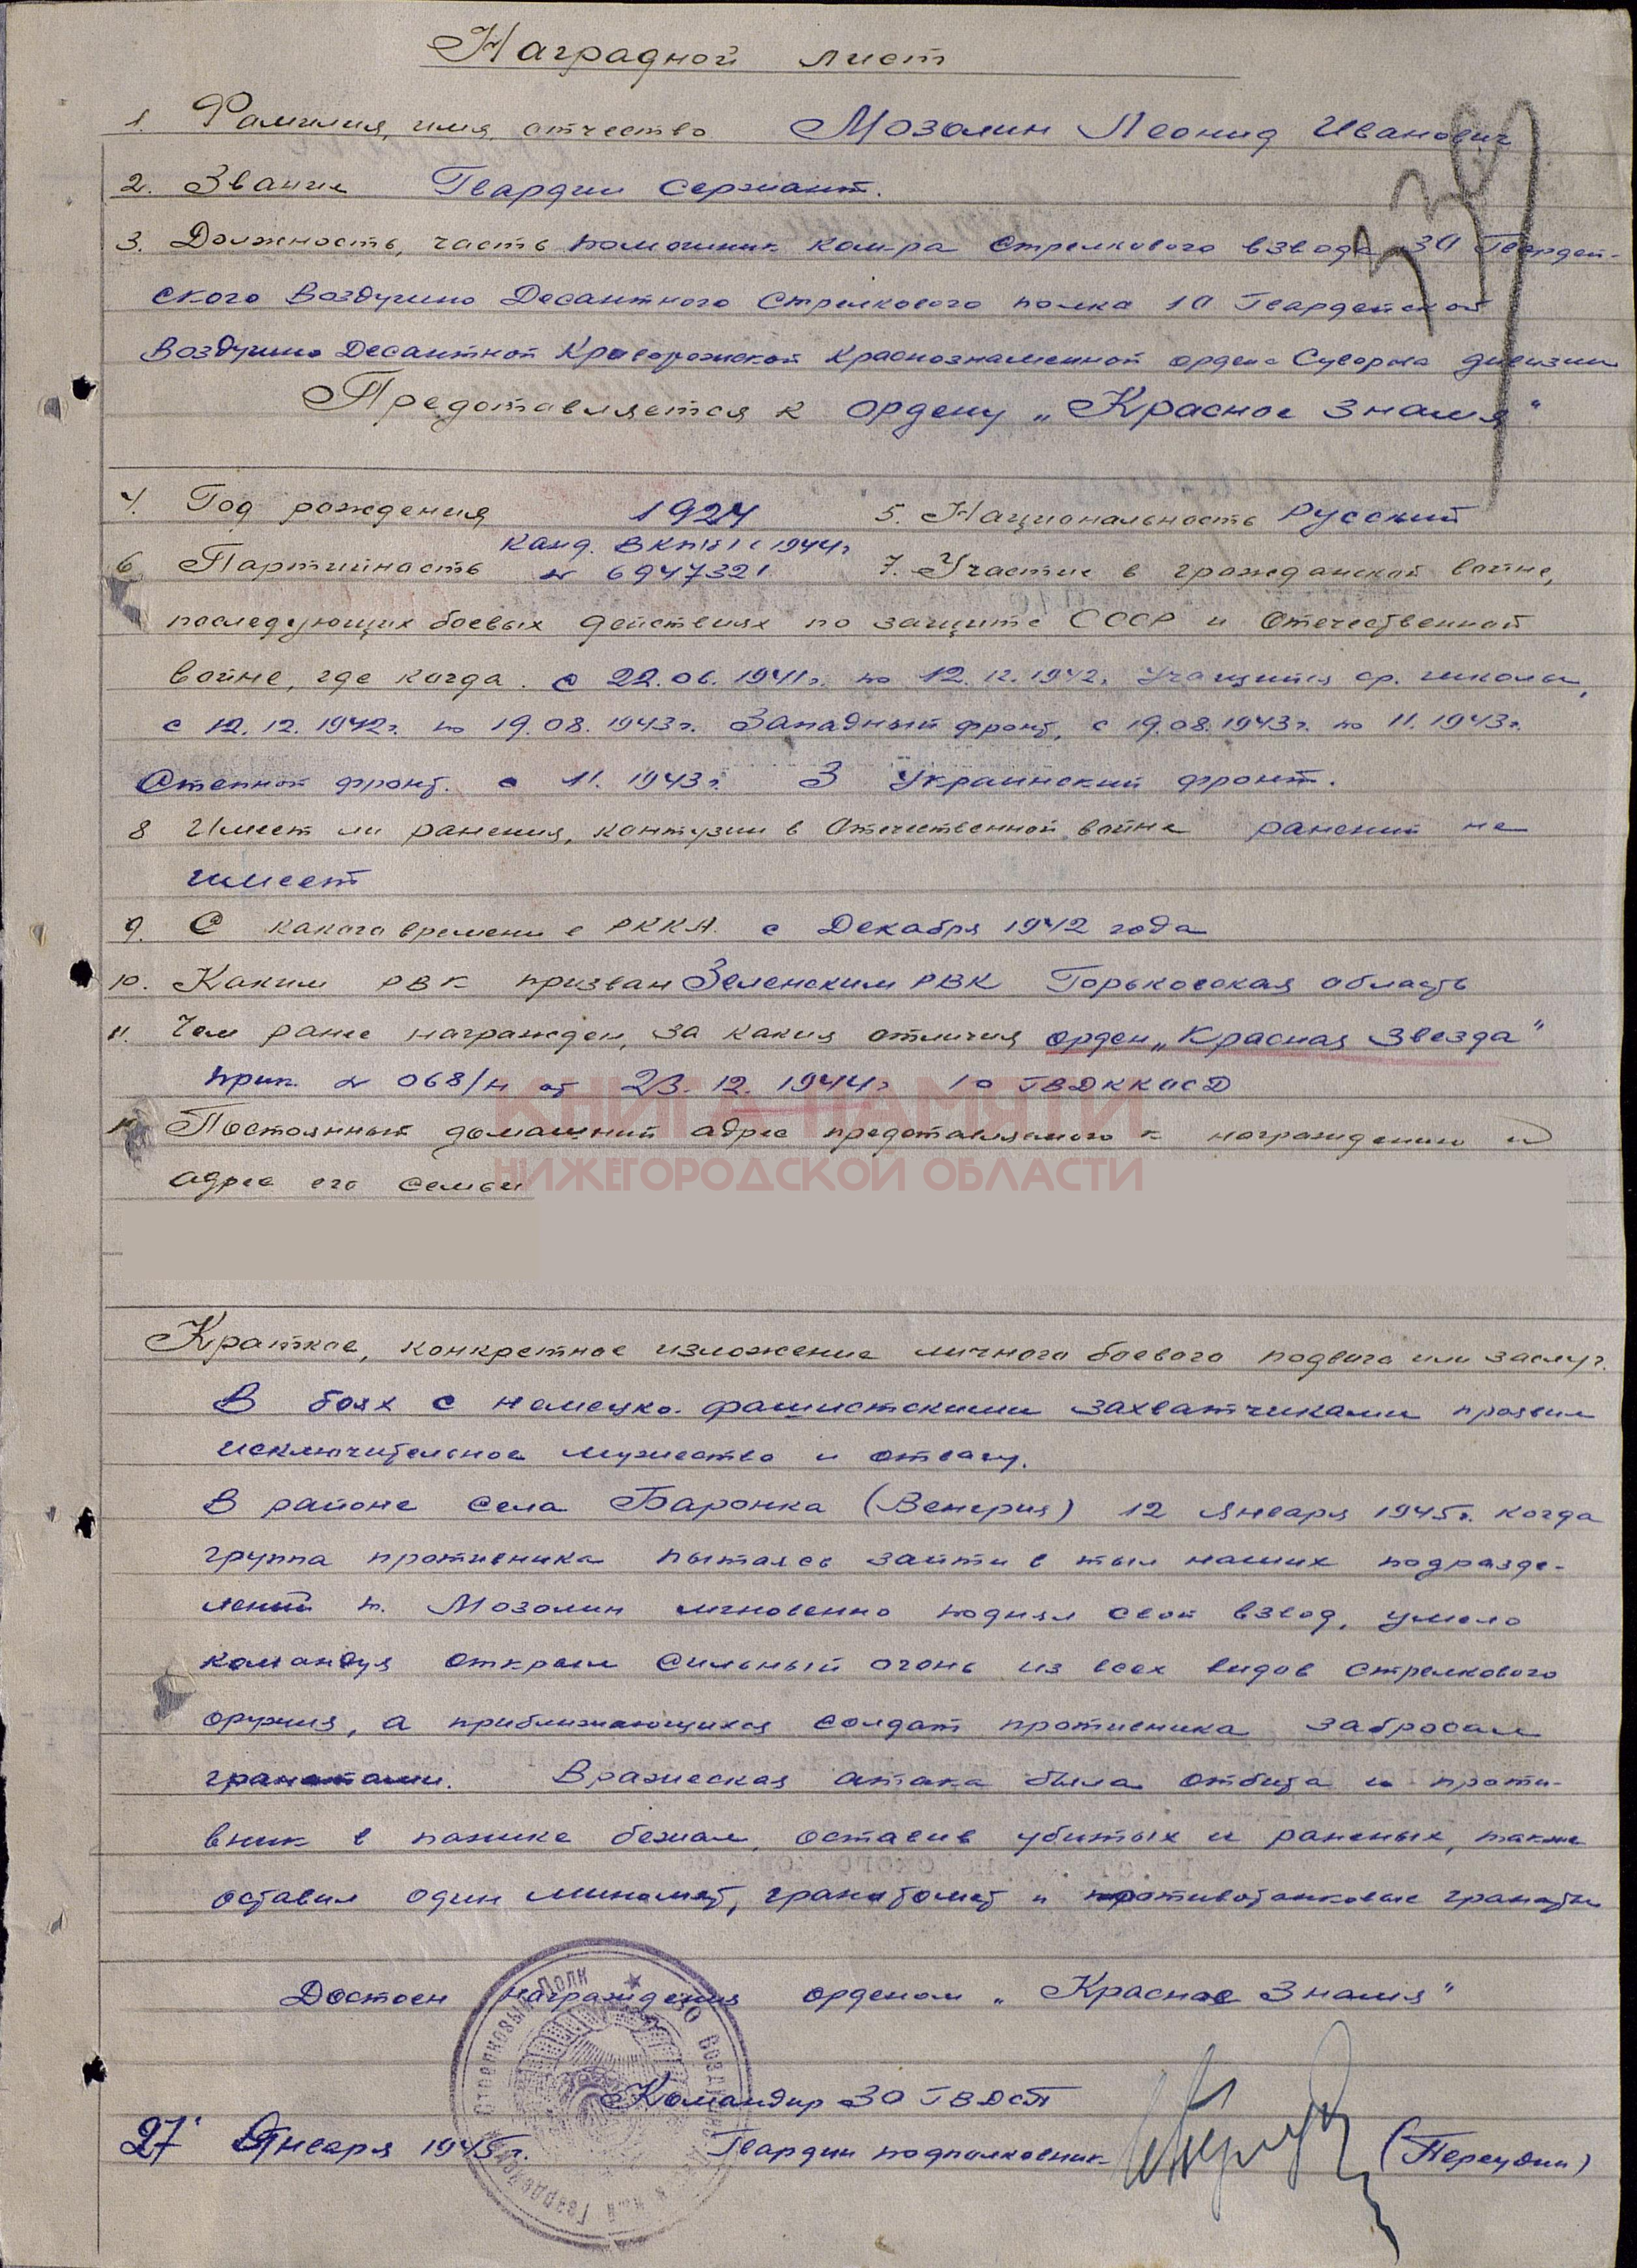 Наградной лист
1. Фамилия, имя, отчество Мозолин Леонид Иванович
2. Звание Гвардии Сержант.
3. Должность, часть помошник ком-ра Стрелкового взвода 30 Гвардей-
ского Воздушно Десантного Стрелкового полка 10 Гвардейской
Воздушно Десантной Криворожской Краснознаменной ордена Суворова дивизии
Предоставляется к ордену „Красное Знамя"
4. Год рождения 1924 5. Национальность Русский
Канд. ВКП(б) с 1944г
6 Партийность № 6947321 7. Участие в гражданской войне,
последующих боевых действиях по защите СССР и Отечественной
войне, где когда. с 22.06.1941г. по 12.12.1942г. Учащийся ср. школы,
с 12.12.1942г. по 19.08.1943г. Западный фронт, с 19.08.1943г. по 11.1943г.
Степной фронт. с 11.1943г. 3 Украинский фронт.
8 Имеет ли ранения, контузии в Отечественной войне ранений не
имеет
9. С какого времени в РККА. с Декабря 1942 года
10. Каким РВК призван Зеленским РВК Горьковская область
11. Чем ранее награжден, за какия отличия орден „Красная Звезда"
прик. № 068/н от 23.12.1944г 10 ГВДККОСД
КНИГА ПАМЯТИ
12 Постоянный домашний адрес предоставляемого к награждению и
НИЖЕГОРОДСКОЙ ОБЛАСТИ
адрес его семьи
Краткое, конкретное изложение личного боевого подвига или заслуг.
В боях с немецко-фашистскими захватчиками проявил
исключительное мужество и отвагу.
В районе села Баронка (Венгрия) 12 Января 1945г. когда
группа противника пыталась зайти в тыл наших подразде-
лений т. Мозолин мгновенно поднял свой взвод, умело
командуя открыл сильный огонь из всех видов стрелкового
оружия, а приближающихся солдат противника забросал
гранатами. Вражеская атака была отбита и проти-
вник в панике бежал, оставив убитых и раненых, также
оставил один миномет, гранатомет и противотанковые гранаты
Достоен награждения орденом „Красное Знамя"
Командир 30 ГВДСП
27 Января 1945г. Гвардии подполковник